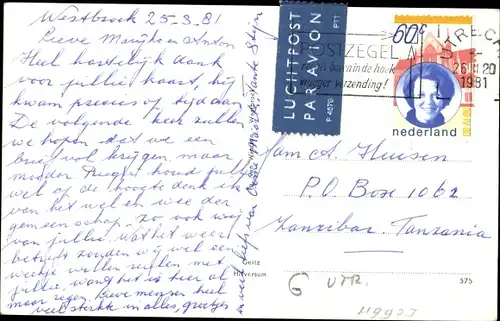 Westbroek 25-3-81
Lieve Marijke en Anton
Heel hartelijk dank
voor jullie kaart, hij
kwam precies op tijd aan
De volgende keer zullen
we hopen dat we een
brief vol krijgen, maar
moeder houd jullie
wel op de hoogte denk ik
van het wel en wee der
gemeenschap, zo ook wij
van jullie. Wat het weer
betreft zouden wij wel een
weekje willen ruilen met
jullie, want het is hier al
maar regen. Lieve mensen heel
veel sterkte in alles, groetjes
en veel liefs van Tante Stijn
LUCHTPOST
PAR AVION
PTT
P 4578
POSTZEGEL
vlugger verzending!
UTREC
26 III 20
1981
60c
nederland
Fam A. Huisen
P.O. Box 1062
Zanzibar. Tanzania
Geitz
Hilversum
575
6 UTR.
119927